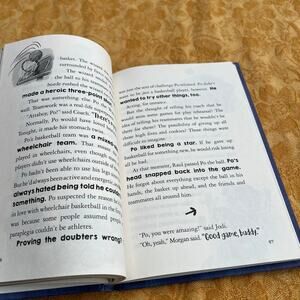 basket. The wizard
surrounded by fire
The wizard
the ball to his teammate
horde rushed the wizard
made a heroic three-point
That was something the
Teamwork was a real-life
"Attaboy, Po!" said Coach. "There's
Normally, Po would have
Tonight, it made his stomach twist.
Po's basketball team was a mixed
wheelchair team. That meant
played in wheelchairs, even though
didn't use wheelchairs outside
Po hadn't been able to use his legs
But he'd always been active and
always hated being told he couldn't
something. Po suspected the reason
in love with wheelchair basketball in the
was because some people assumed
paraplegia couldn't be athletes.
Proving the doubters wrong?
was just the sort of challenge Po relished. Po didn't
want to be just a basketball player, however. He
wanted to try other things, too.
Acting, for instance.
But the thought of telling his coach that he
would miss some games for play rehearsal? The
thought of telling his teammates he wouldn't be
there for them? The possibility of giving up all
those high fives and cookies? Those things were
difficult to imagine.
Po liked being a star. If he gave up
basketball for something new, he would risk losing
that.
At that moment, Raul passed Po the ball. Po's
head snapped back into the game.
He forgot about everything except the ball in his
hands, the basket up ahead, and the friends and
teammates all around him.
"Po, you were amazing!" said Jodi.
"Oh, yeah," Morgan said. "Good game, buddy."
67